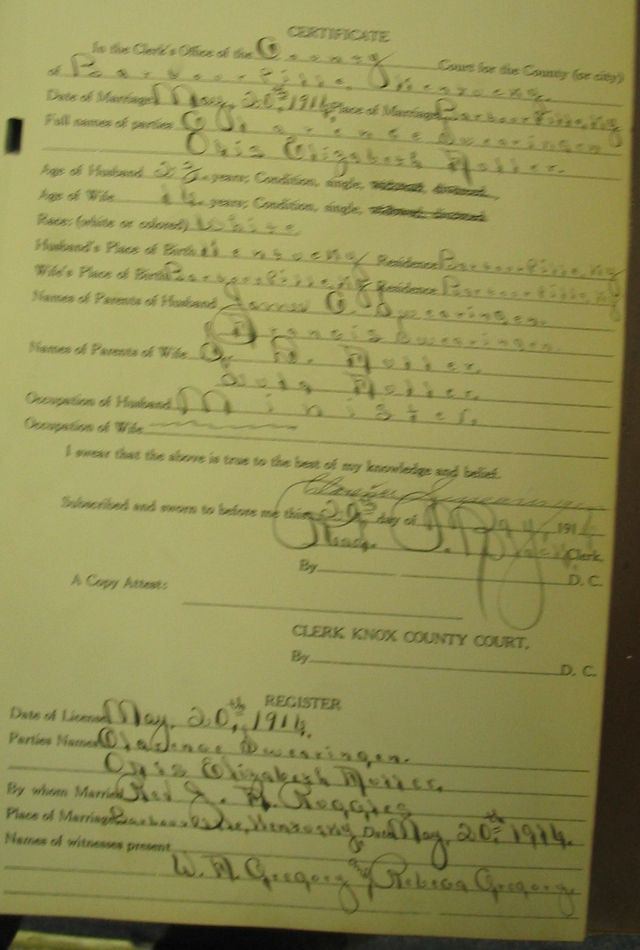 CERTIFICATE
In the Clerk's Office of the County Court for the County (or city)
of Barbourville, Kentucky.
Date of Marriage May, 20th, 1914, Place of Marriage Barbourville, Ky
Full names of parties Clarence Swearingen
Opis Elizabeth Moller.
Age of Husband years; Condition, single, widowed, divorced.
Age of Wife years; Condition, single, widowed, divorced
Race: (white or colored) White
Husband's Place of Birth Kentucky Residence Barbourville, Ky
Wife's Place of Birth Barbourville, Ky Residence Barbourville, Ky
Names of Parents of Husband James Swearingen.
Francis Swearingen.
Names of Parents of Wife Moller.
Moller.
Occupation of Husband Minister.
Occupation of Wife
I swear that the above is true to the best of my knowledge and belief.
Clarence Swearingen
Subscribed and sworn to before me this 20th day of May, 1914
Clerk.
By D. C.
A Copy Attest:
CLERK KNOX COUNTY COURT.
By D. C.
REGISTER
Date of License May, 20th, 1914.
Parties Names Clarence Swearingen.
Opis Elizabeth Moller.
By whom Married Rev J. H.
Place of Marriage Barbourville, Kentucky, Date May, 20th 1914.
Names of witnesses present
W. H. Gregory and Rebeca Gregory